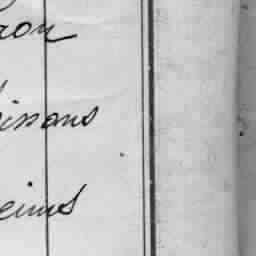 ron
issons
eims